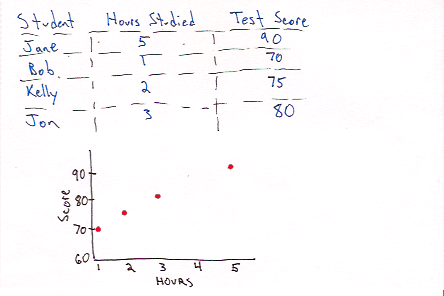 Student Hours Studied Test Score
Jane 5 90
Bob 1 70
Kelly 2 75
Jon 3 80
90
80
70
60
Score
1 2 3 4 5
HOURS